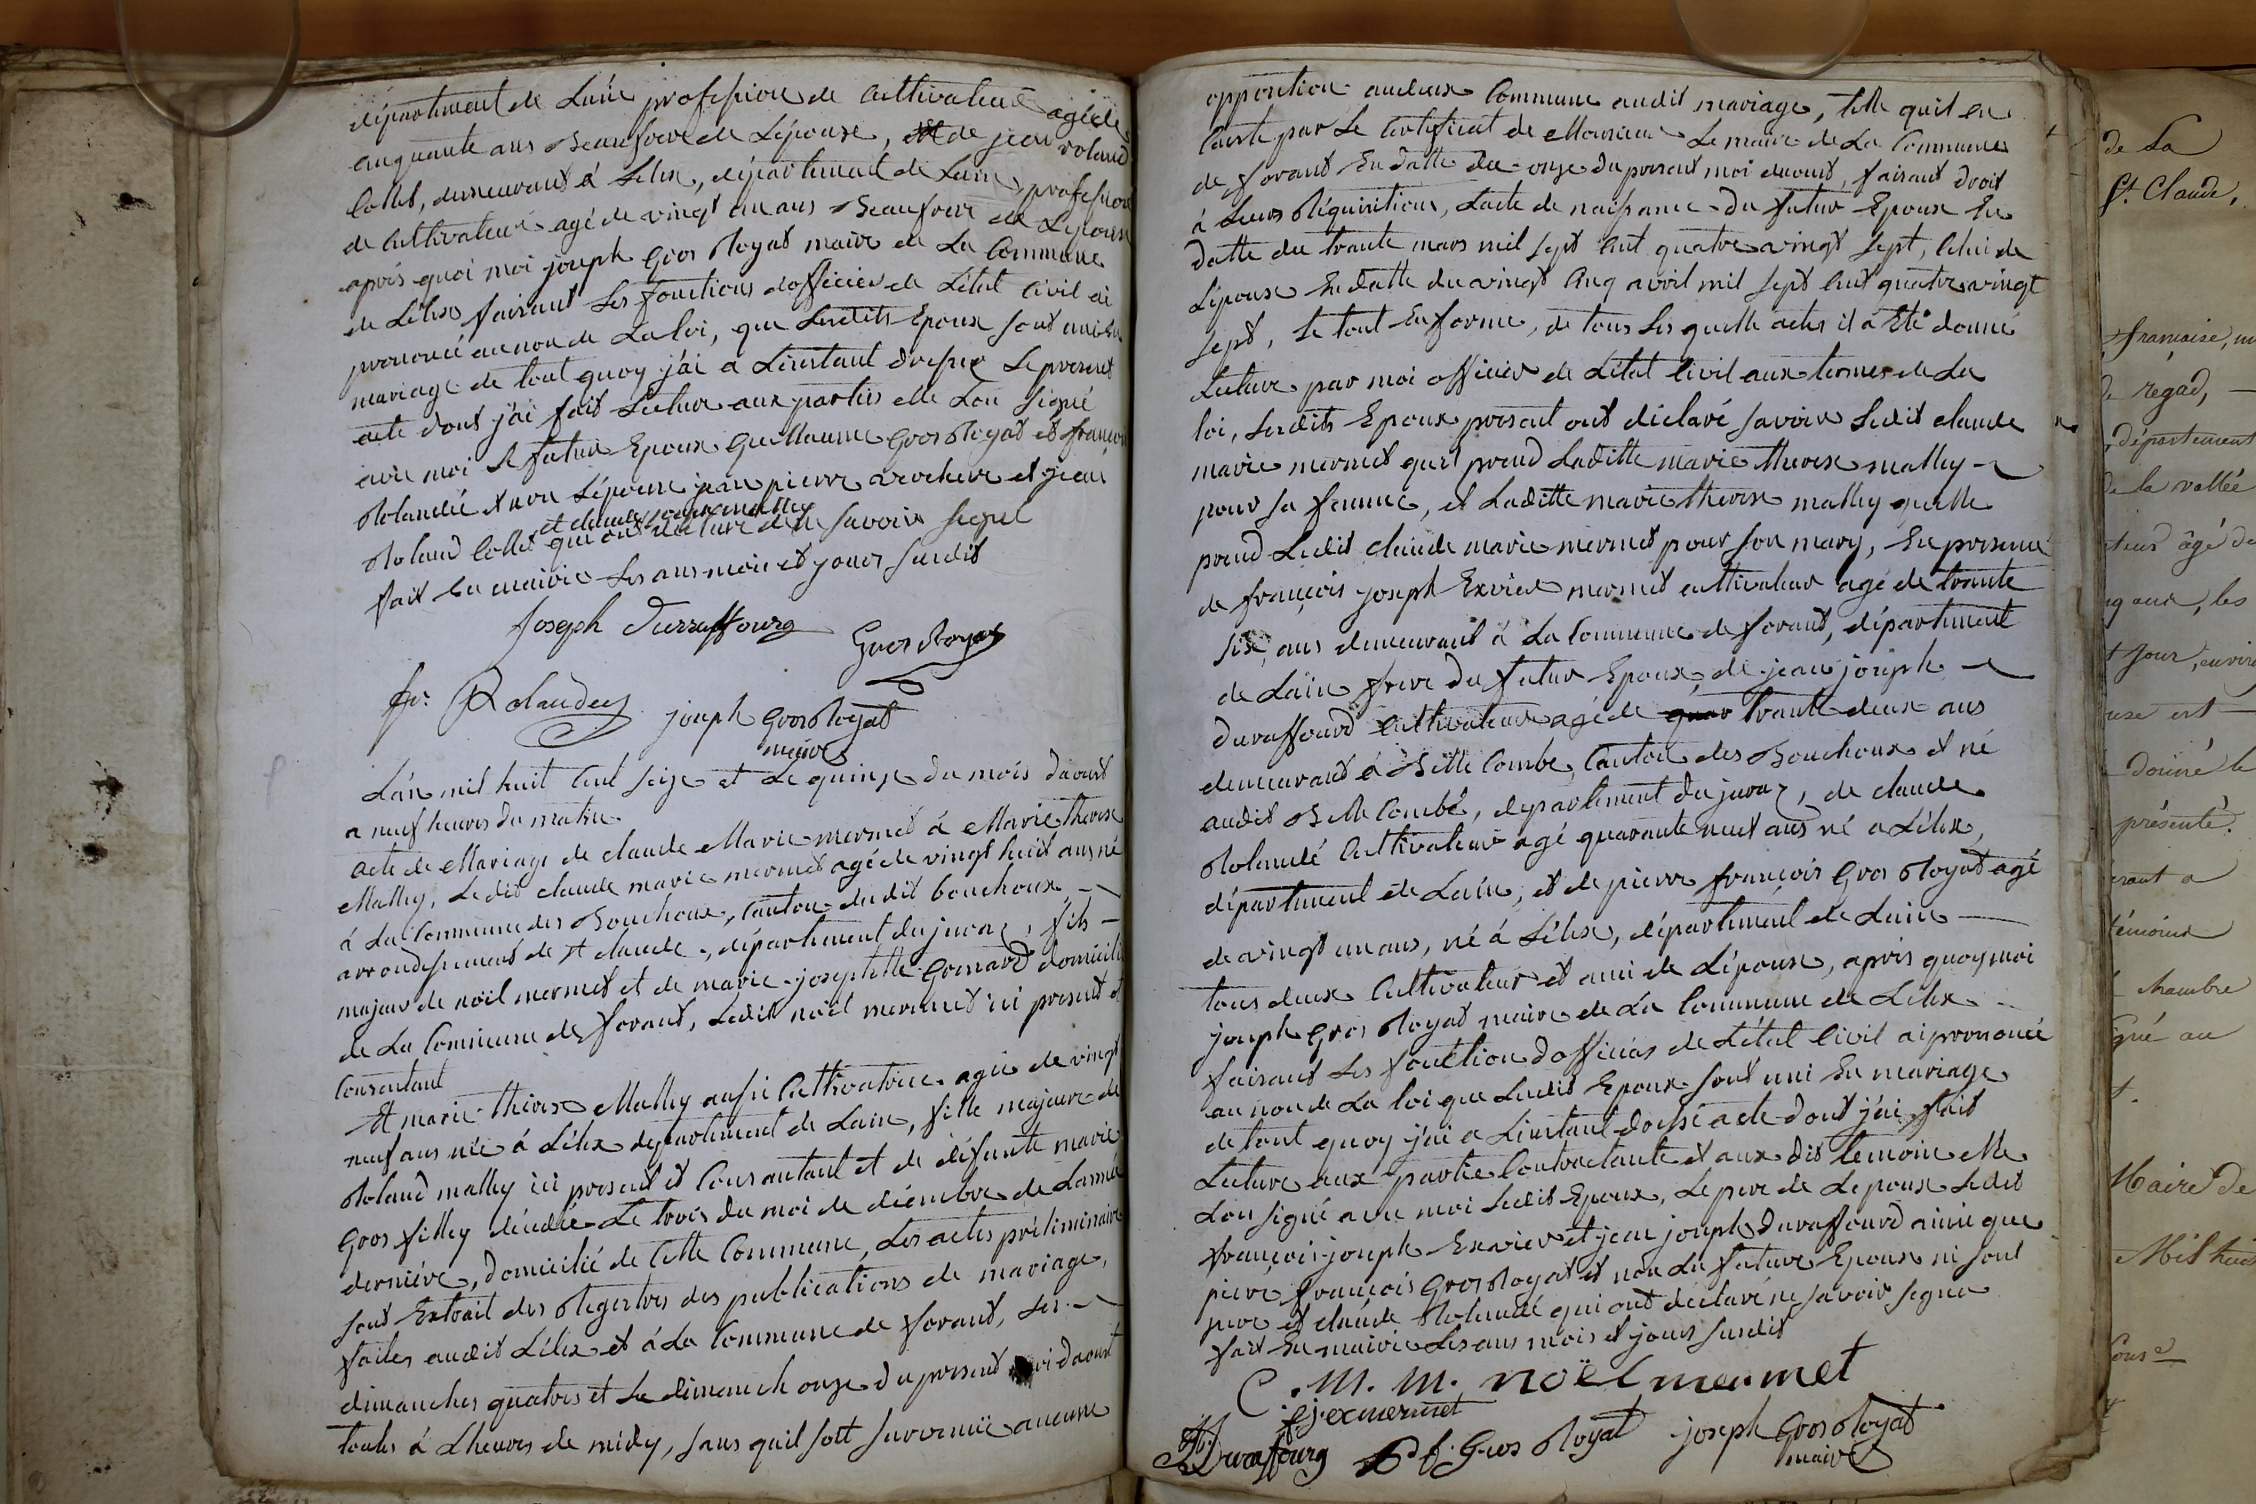 département de Lain profession de Cultivateur agé de
cinquante ans Beaufrere de Lépouse, et de jean roland
Collet, demeurant á Lélex, département de Lain, profession
de Cultivateur agé de vingt cinq ans Beaufrere de Lépouse
aprés quoi moi joseph Gros Royat maire de La Commune
de Lélex faisant Les fonctions dofficier de Létat Civil ai
prononcé au non de La loi, que Lesdits Epoux sont unis En
mariage de tout quoy j'ai a Linstant dressé Le present
acte dont j'ai fait Lecture aux parties elle Lon signé
avec moi Le futur Epoux Guillaume Gros Royat et françois
Rolandée et non Lépouse jean pierre et jean
et claude joseph malley
Roland Collet qui ont déclaré ne savoir signé
fait En mairie Les ans moi et jour susdit
Joseph Durraffourg
Gros Royat
fr. Rolandez
joseph Gros Royat
maire
Lán mil huit Cent seize et Le quinze du mois daoust
a neuf heures du matin
acte de Mariage de claude Marie mermet á Marie therese
Malley, Ledit claude marie mermet agé de vingt huit ans né
á La Commune des Bouchoux, Canton dudit bouchoux
arrondissement de St claude, département du jura, fils
majeur de noël mermet et de marie josephette Grenard domicilié
de La Commune de forant, Ledit noël mermet ici present et
Consentant
Et marie therese Malley aussi Cultivatrice agée de vingt
neuf ans née á Lélex département de Lain, fille majeure de
Roland malley ici present et Consantant et de défunte marie
Gros filley décedée Le trois du moi de décembre de Lannée
derniére, domicilié de Cette Commune, Les actes préliminaire
sont Extrait des Registres des publications de mariage,
faites audit Lélex et á La Commune de forant, Les
dimanches quatre et Le dimanch onze du present moi daoust
toutes á Lheures de midy, sans quil soit survenuë aucune
opposition audeux Commune audit mariage, telle quil en
Conste par Le Certificat de Monsieur Le maire de La Commune
de forant En datte du onze du present moi daoust, faisant droit
á Leurs Réquisitions, Lacte de naissance du futur Epoux En
datte du trante mars mil sept Cent quatre vingt sept, Celui de
Lépouse En datte du vingt Cinq avril mil sept Cent quatre vingt
sept, Le tout En forme, de tous Les quelle actes il á Eté donné
Lecture par moi officier de Létat Civil aux termes de La
loi, Lesdits Epoux present ont déclaré savoir Ledit claude
marie mermet quil prend Laditte marie therese malley
pour sa femme, et Laditte marie therese malley quelle
prend Ledit claude marie mermet pour son mary, En presence
de françois joseph Exvier mermet cultivateur agé de trante
six ans demeurant á La Commune de forant, département
de Lain frere du futur Epoux, de jean joseph
duraffourd Cultivateur agé de quar trante deux ans
demeurant á Belle Combe, Canton des Bouchoux et né
audit Belle Combé, département du jura, de claude
Rolandé Cultivateur agé quarante neuf ans né a Lélex,
département de Lain, et de pierre françois Gros Royat agé
de vingt un ans, né á Lélex, département de Lain
tous deux Cultivateur et ami de Lépouse, aprés quoy moi
joseph Gros Royat maire de La Commune de Lélex
faisant Les fonction dofficiers de Létat Civil ai prononcé
au non de La loi que Lesdit Epoux sont uni En mariage
de tout quoy j'ai a Linstant dressé acte dont j'ai fait
Lecture aux partie Contractante et aux dit temoin elle
Lon signé avec moi Ledit Epoux, Le pere de Lepoux Ledit
françois joseph Exvier et jean joseph duraffourd ainsi que
pierre françois Gros Royat et non La future Epoux ni sont
pere et claude Rolandé qui ont déclaré ne savoir signer
fait En mairie Les ans mois et jours susdit
C. m. m. noël mermet
fj ex mermet
JJ Duraffourg
P f. Gros Royat
joseph Gros Royat
maire
de La
St. Claude,
française,
de regad,
département
de la vallée
âgé de
les
jour,
est
donné le
présenté.
a
témoins
chambre
au
Maire de
Mil huit